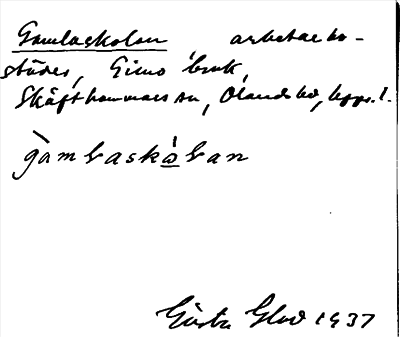 Gamlaskolan, arbetarbo-
städer, Gimo bruk,
Skäfthammars sn, Olands hd, Uppl.
gambaskåban
Gösta Glad 1937